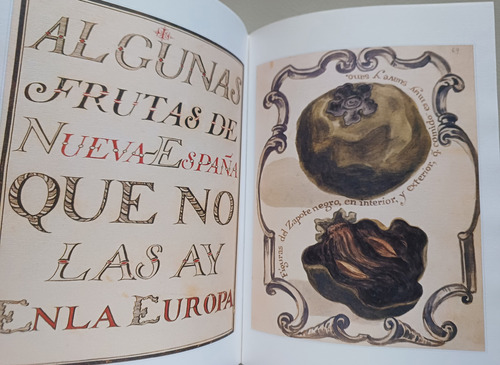 ALGUNAS
FRUTAS DE
NUEVA ESPAÑA
QUE NO
LAS AY
EN LA EUROPA,
Figuras del Zapote negro, en interior, y exterior, es comida muy suave y sano.